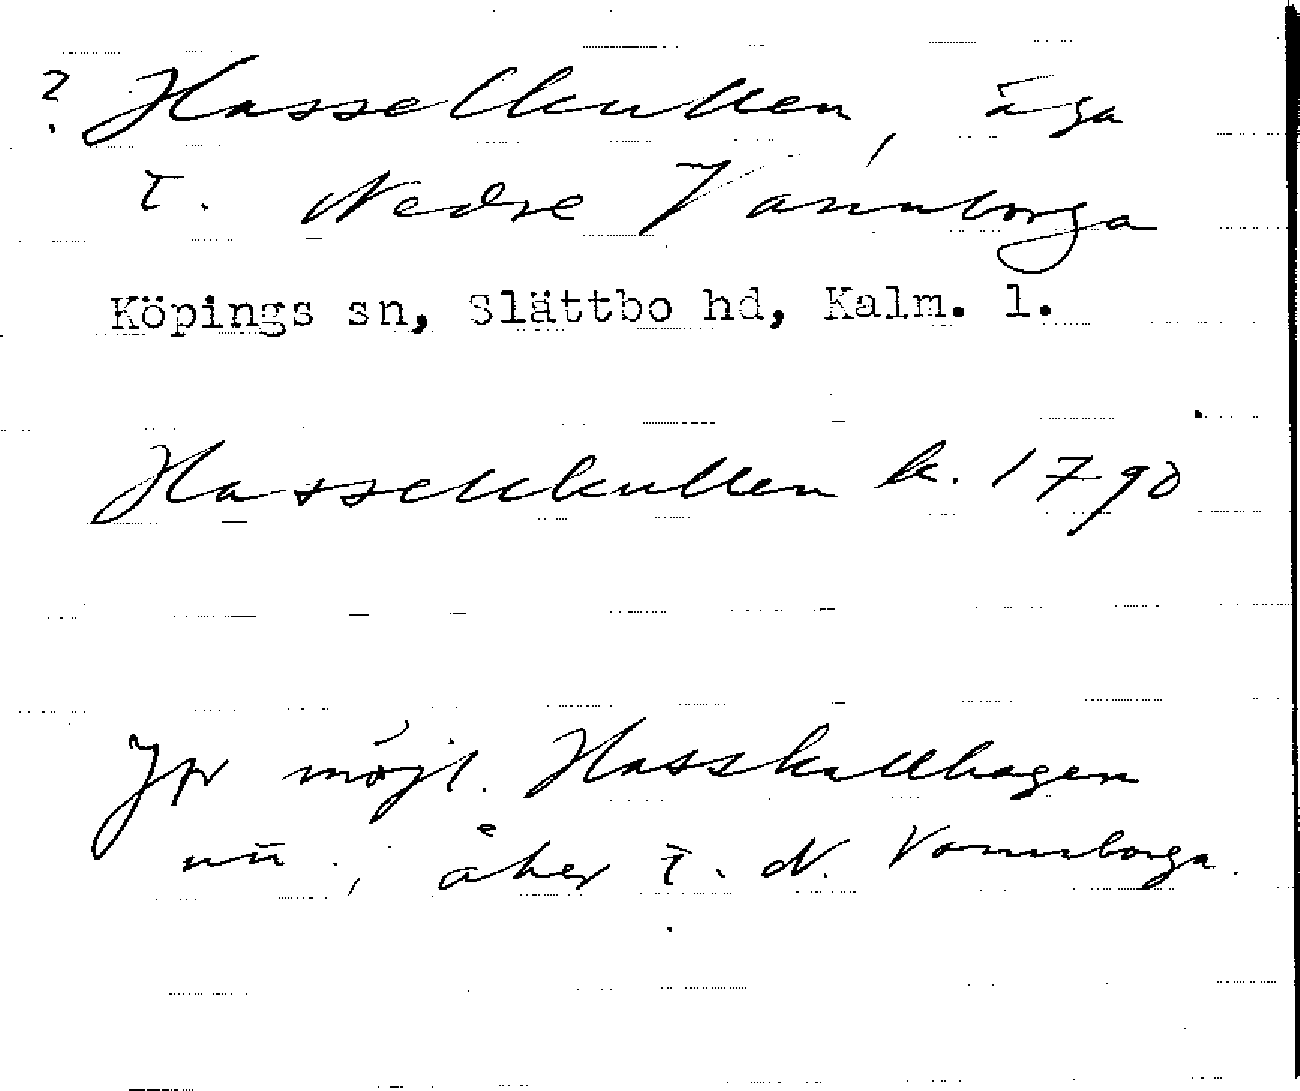 ? Hasselkullen, äga
t. Nedre Vannborga
Köpings sn, Slättbo hd, Kalm. l.
Hasselkullen k. 1790
Jfr möjl. Hasskullhagen
nu, åker t. N. Vannborga.